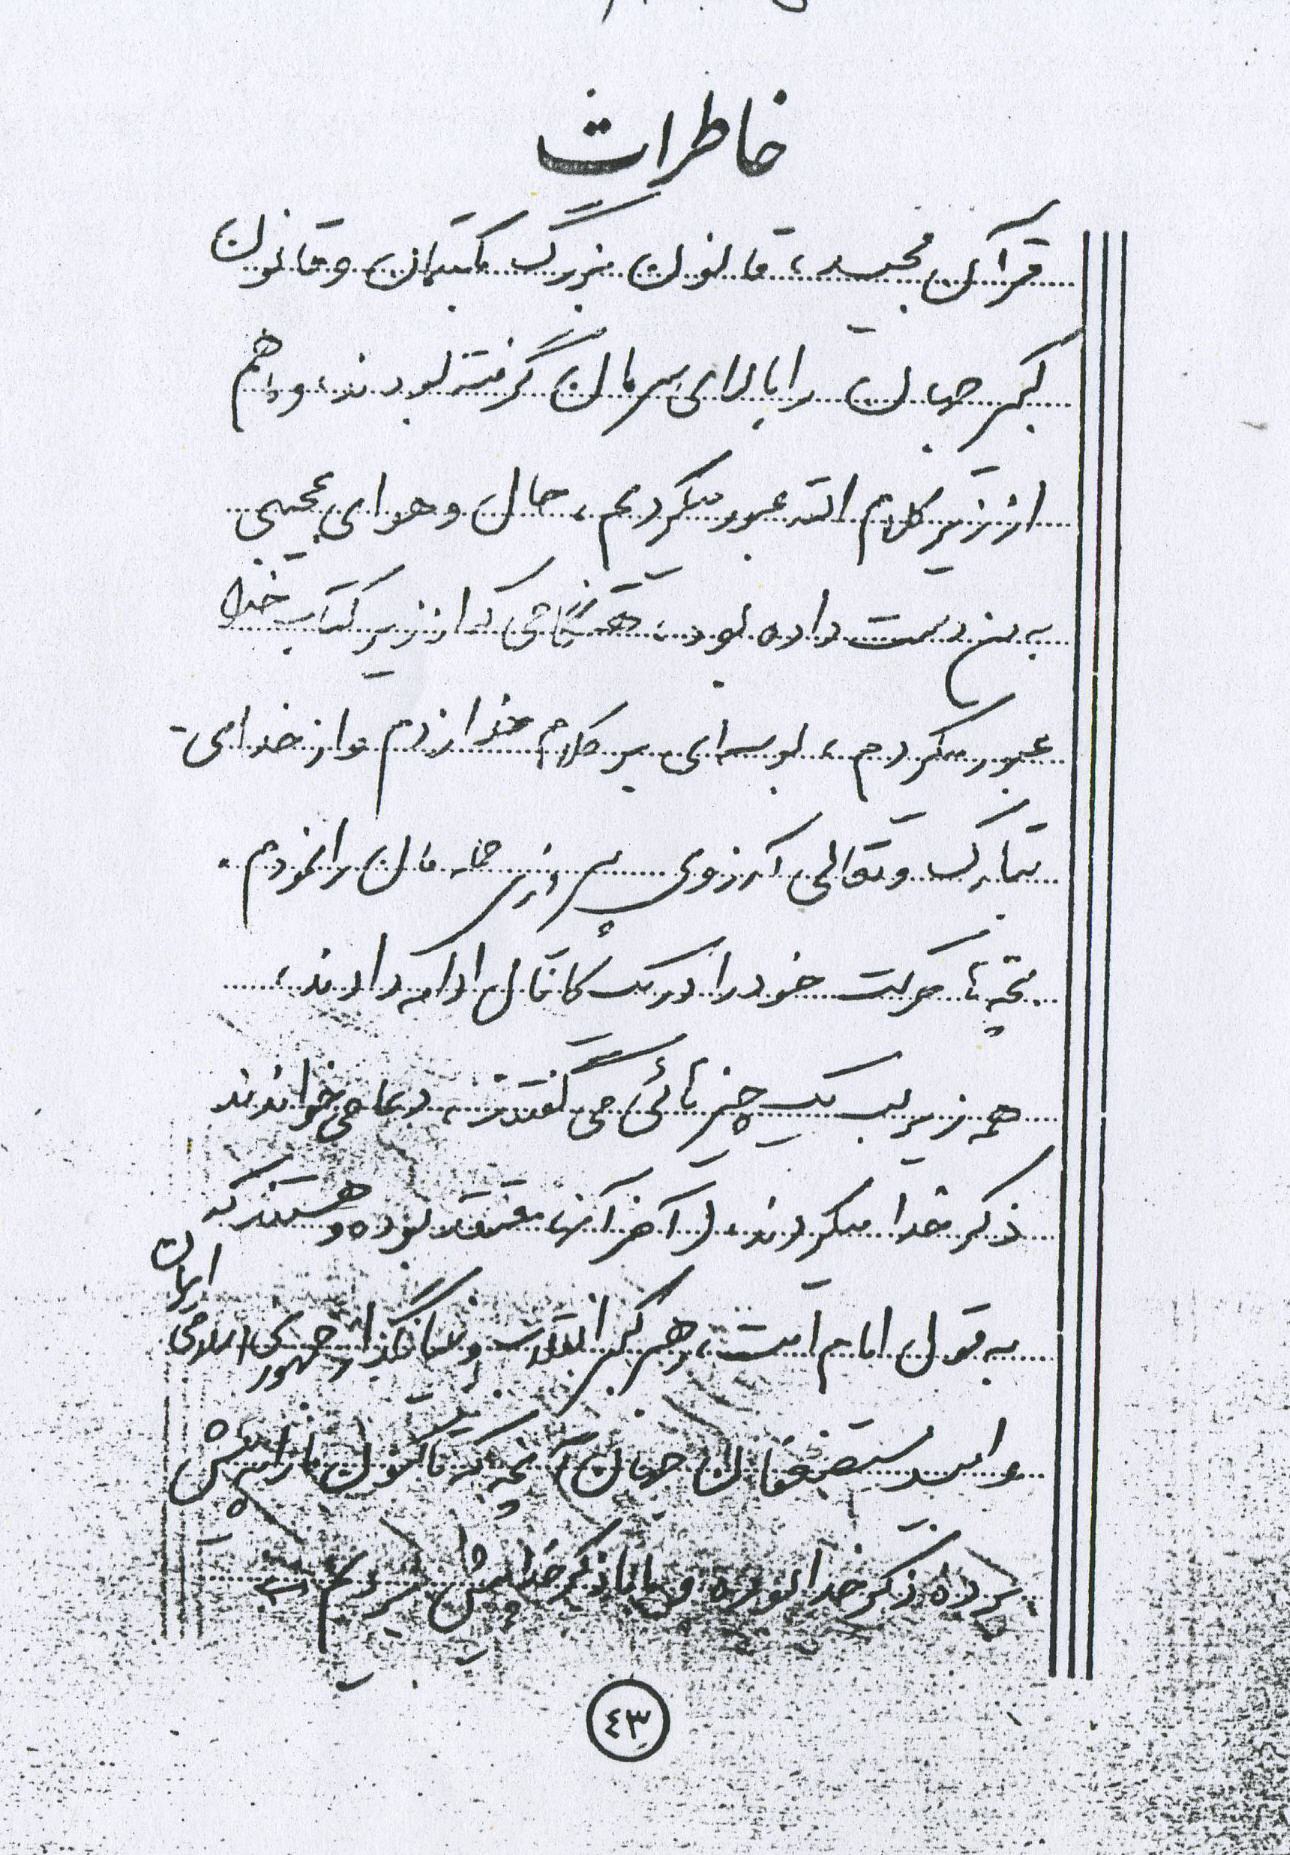 خاطرات
قرآن مجید، قانون بزرگ مکتبمان و قانون
بگیر جهان را بالای سرمان گرفته بودند، و ما هم
از زیر کلام الله عبور میکردیم، حال و هوای عجیبی
به من دست داده بود، هنگامی که از زیر کتاب خدا
عبور میکردم، بوسه‌ای بر کلام خدا زدم و از خدای
تبارک و تعالی آرزوی پیروزی همه مان را نمودم.
بچه ها حرکت خود را در یک کانال ادامه دادند،
همه زیر لب یک چیز هائی می گفتند، دعا می خواندند
ذکر خدا میکردند، آخر آنها معتقد بوده و هستند که
به قول امام امت، رهبر کبیر انقلاب و بنیانگذار جمهوری اسلامی ایران
و امید مستضعفان جهان آنچه که تاکنون ما را به پیش
برده ذکر خدا بوده و ما با ذکر خدا پیش می‌رویم
٤٣